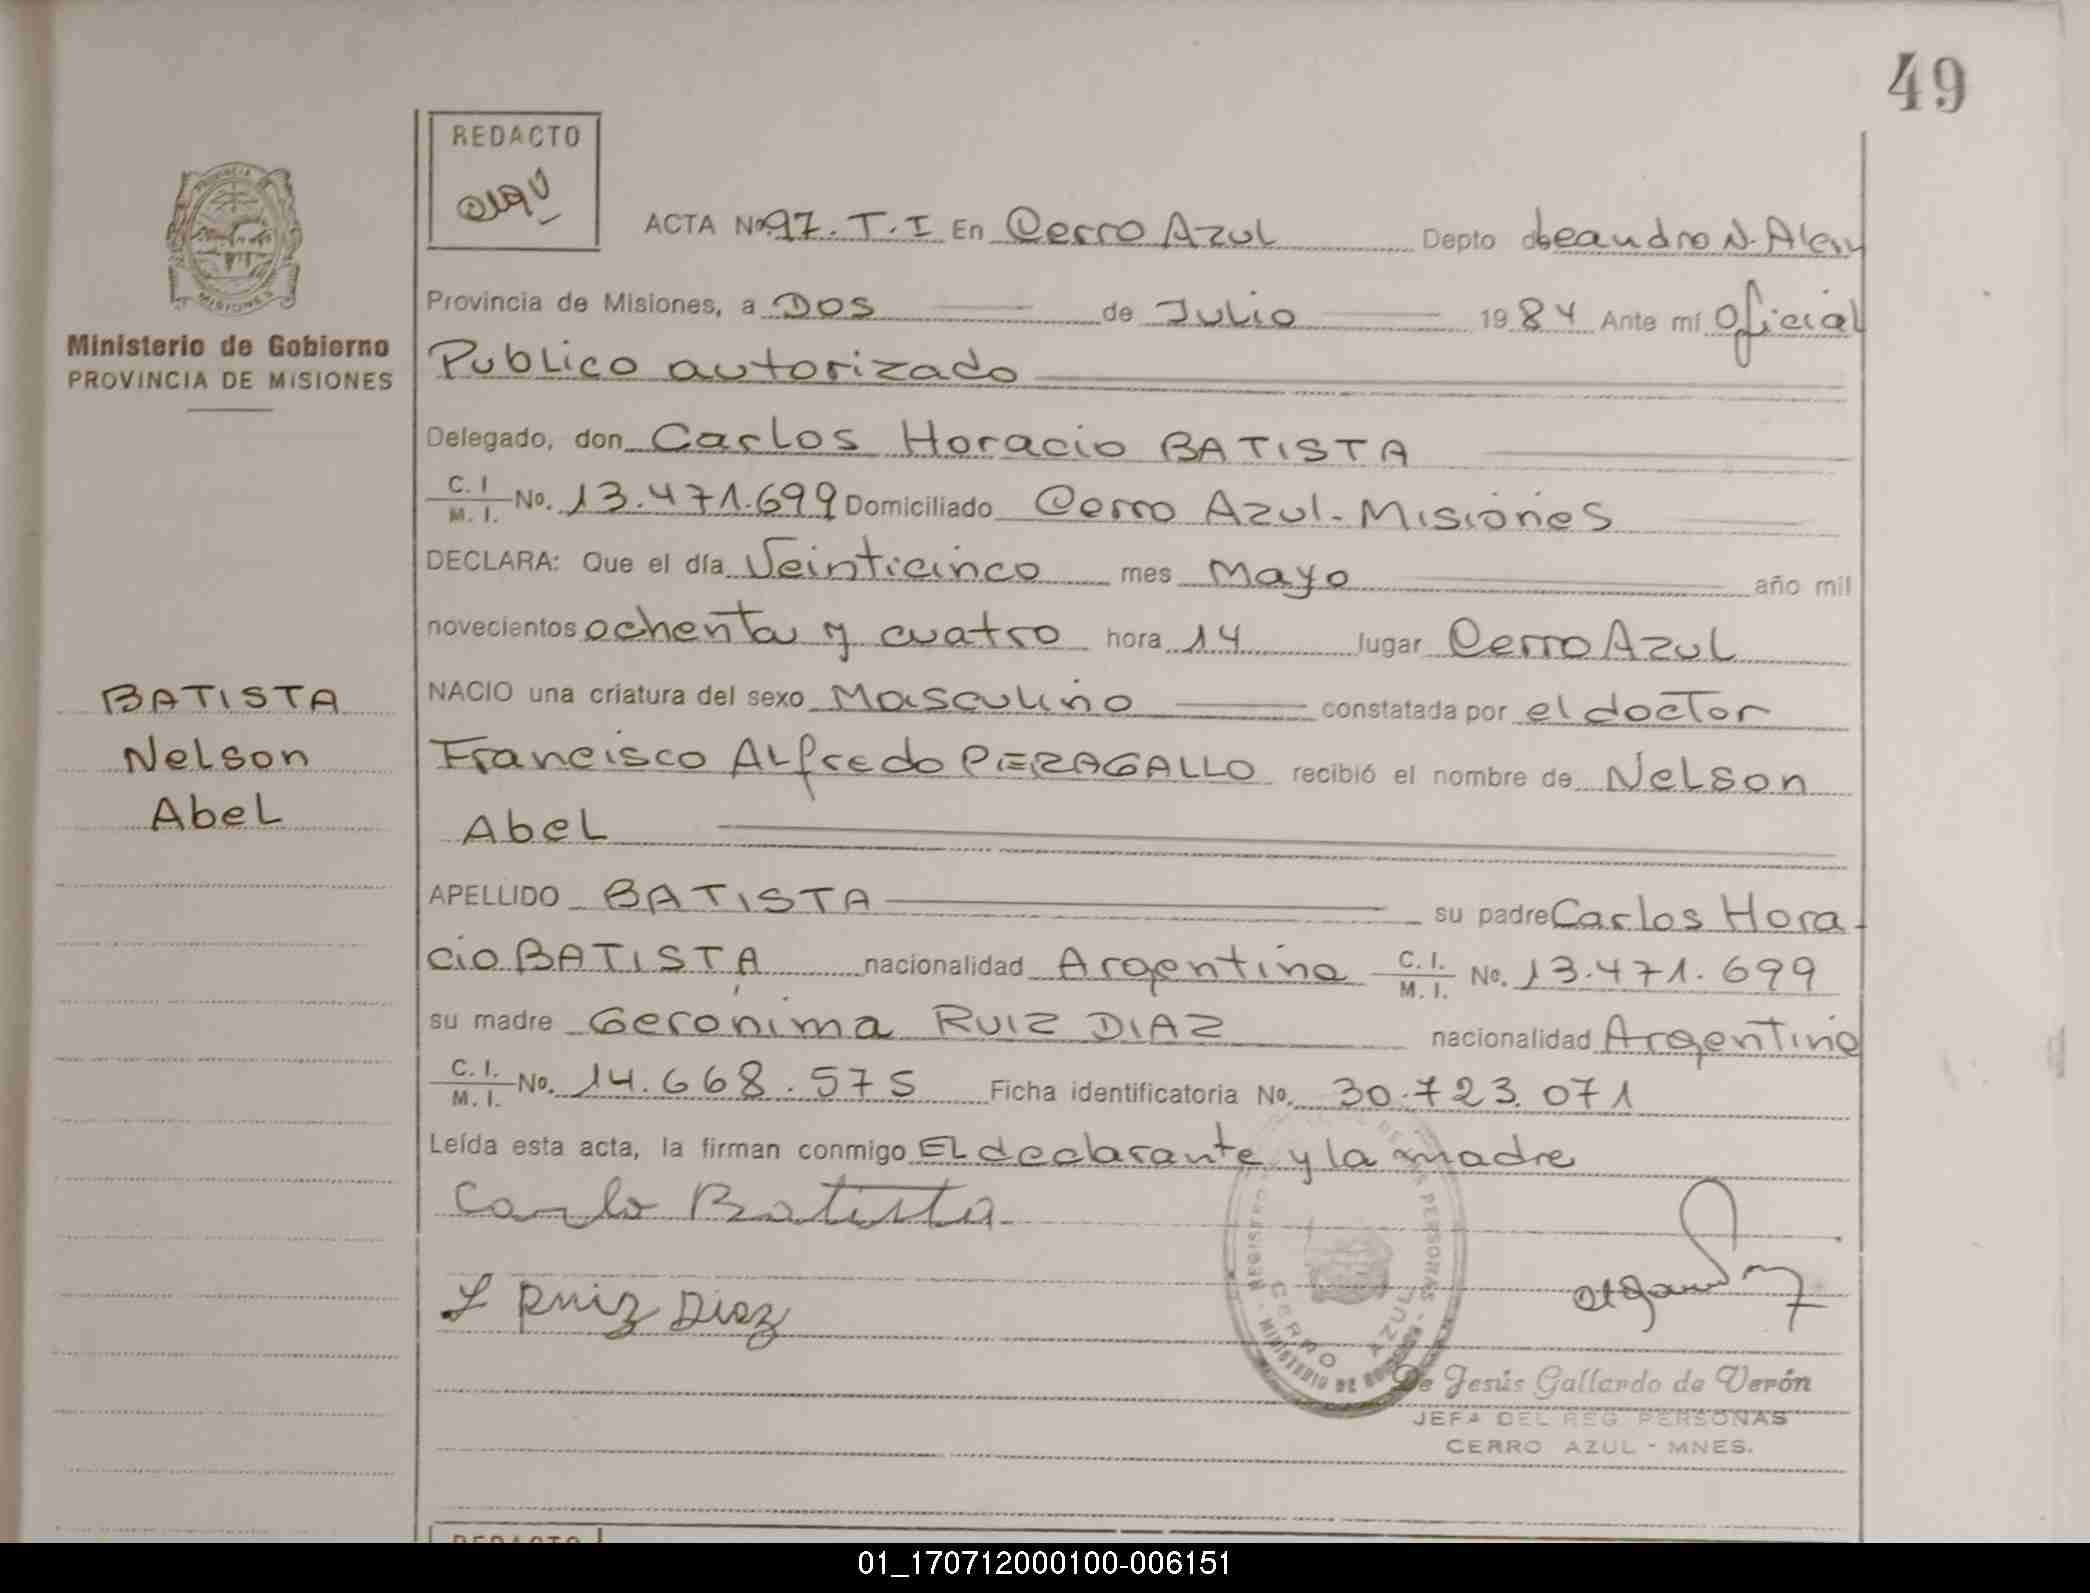 49
REDACTO
PROVINCIA DE
MISIONES
Ministerio de Gobierno
PROVINCIA DE MISIONES
ACTA Nº 97. T. I En Cerro Azul Depto de Leandro N. Alem
Provincia de Misiones, a Dos de Julio 1984 Ante mí Oficial
Publico autorizado
Delegado, don Carlos Horacio BATISTA
C. I / M. I. No. 13.471.699 Domiciliado Cerro Azul - Misiones
DECLARA: Que el día Veinticinco mes Mayo año mil
novecientos ochenta y cuatro hora 14 lugar Cerro Azul
BATISTA
Nelson
Abel
NACIO una criatura del sexo Masculino constatada por el doctor
Francisco Alfredo PERAGALLO recibió el nombre de Nelson
Abel
APELLIDO BATISTA su padre Carlos Hora-
cio BATISTA nacionalidad Argentina C. I. / M. I. No. 13.471.699
su madre Gerónima RUIZ DIAZ nacionalidad Argentina
C. I. / M. I. No. 14.668.575 Ficha identificatoria No. 30.723.071
Leída esta acta, la firman conmigo El declarante y la madre
Carlo Batista
Ruiz Diaz
REGISTRO DE LAS PERSONAS
CERRO AZUL
MINISTERIO DE GOBIERNO
De Jesús Gallardo de Verón
JEFA DEL REG. PERSONAS
CERRO AZUL - MNES.
REDACTO
01_170712000100-006151